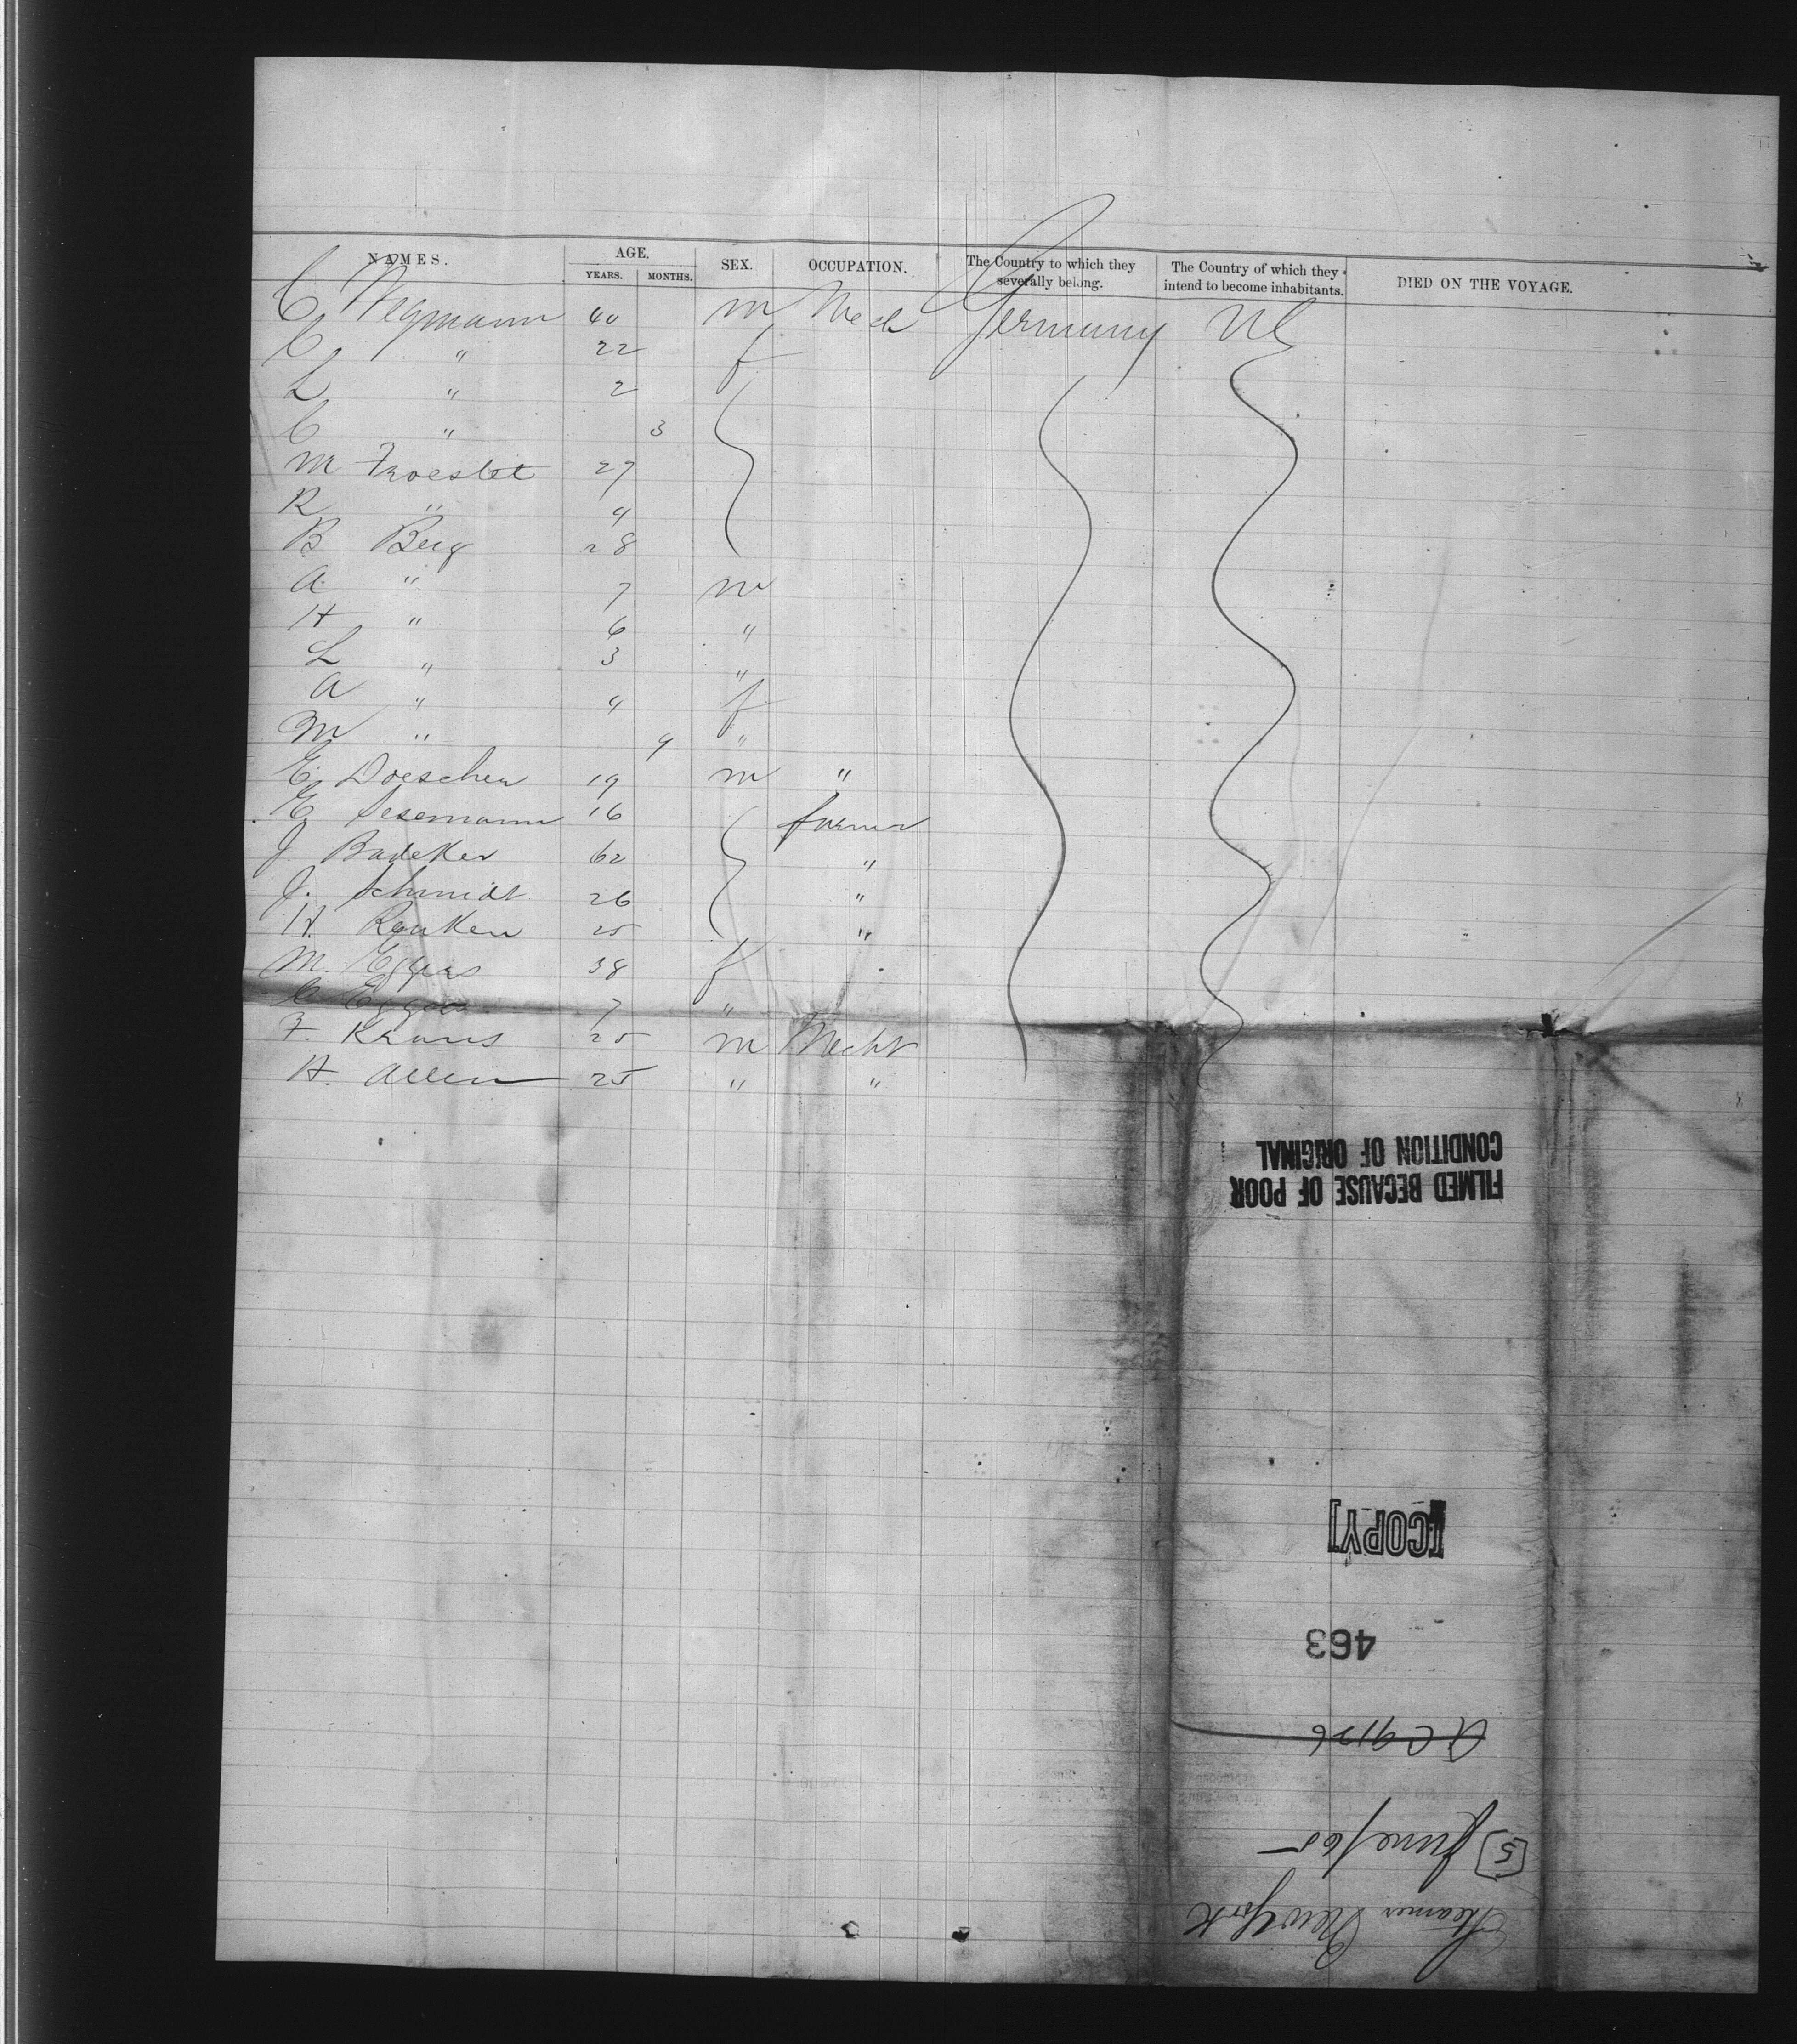 NAMES. AGE. SEX. OCCUPATION. The Country to which they severally belong. The Country of which they intend to become inhabitants. DIED ON THE VOYAGE.
YEARS. MONTHS.
C Wegmann 40 m Mech Germany US
C " 22 f
L " 2
C " 3
M Froestet 27
R " 4
B Berg 28
A " 7 m
H " 6 "
L " 3 "
A " 4 f
M " 9 "
E Doescher 19 m "
E Sesemann 16 farmer
J Badeker 62 "
J. Schmidt 26 "
H. Renken 25 "
M. Eggers 38 f
C Eggers 7 "
F. Kraus 25 m Mecht
H. Allen 25 " "
FILMED BECAUSE OF POOR
CONDITION OF ORIGINAL
[COPY]
463
5 June/65
Steamer New York